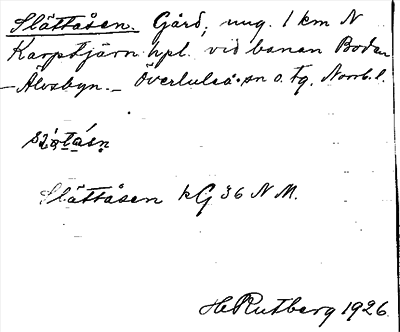 Slättåsen. Gård, ung. 1 km N
Karptjärn hpl. vid banan Boden
–Älvsbyn. – Överluleå sn o. tg. Norrb. l.
Slättåsen kG 36 N M.
H Rutberg 1926.